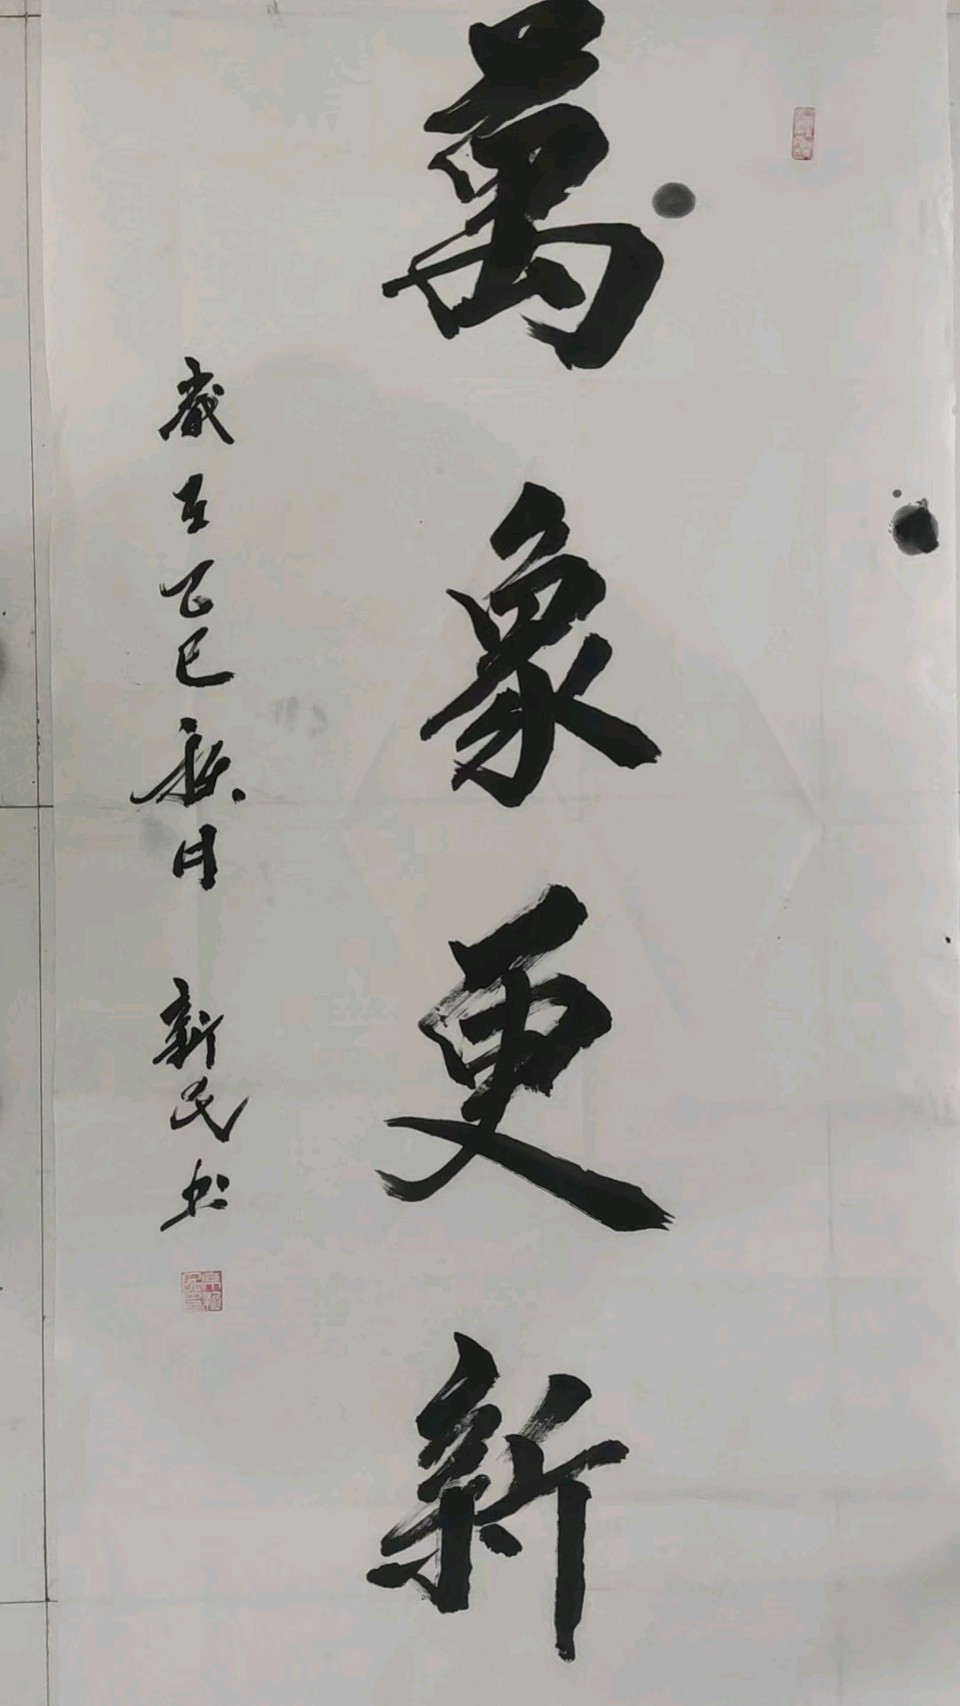 萬象更新
歲在乙巳秋月 新民书